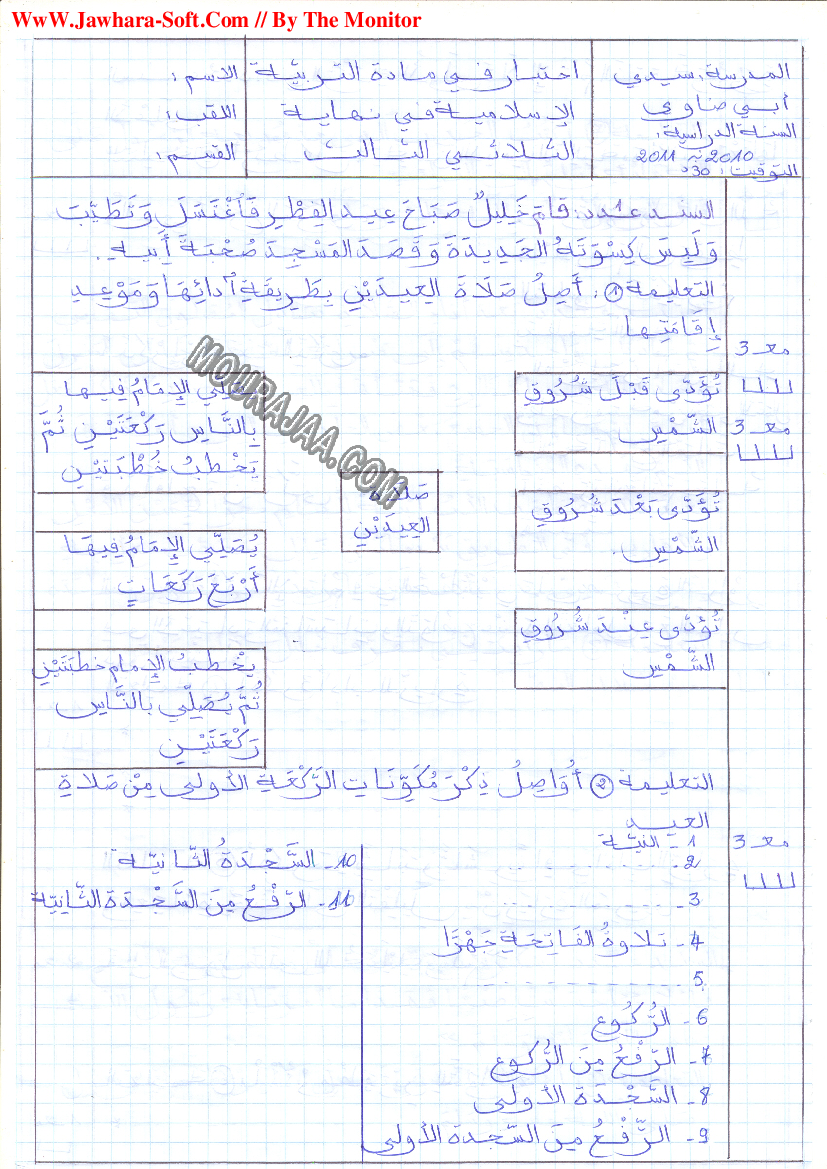 WwW.Jawhara-Soft.Com // By The Monitor
المدرسة: سيدي
أبي ضاوي
السنة الدراسية:
2010 ~ 2011
التوقيت: 30د
اختبار في مادة التربية
الإسلامية في نهاية
الثلاثي الثالث
الاسم:
اللقب:
القسم:
السند عدد1: قَامَ خَلِيلٌ صَبَاحَ عِيدِ الفِطْرِ فَاْغْتَسَلَ وَتَطَيَّبَ
وَلَبِسَ كِسْوَتَهُ الجَدِيدَةَ وَقَصَدَ المَسْجِدَ صُحْبَةَ أَبِيهِ.
التعليمة ①: أَصِلُ صَلَاةَ العِيدَيْنِ بِطَرِيقَةِ أَدَائِهَا وَمَوْعِدِ
إِقَامَتِهَا
مع 3
مع 3
تُؤَدَّى قَبْلَ شُرُوقِ
الشَّمْسِ
تُؤَدَّى بَعْدَ شُرُوقِ
الشَّمْسِ.
تُؤَدَّى عِنْدَ شُرُوقِ
الشَّمْسِ
صَلَاةُ
العِيدَيْنِ
يُصَلِّي الإِمَامُ فِيهَا
بِالنَّاسِ رَكْعَتَيْنِ ثُمَّ
يَخْطبُ خُطْبَتَيْنِ
يُصَلِّي الإِمَامُ فِيهَا
أَرْبَعَ رَكَعَاتٍ
يَخْطبُ الإمام خطبَتَيْنِ
ثُمَّ يُصَلِّي بالنَّاسِ
رَكْعَتَيْنِ
MOURAJAA.COM
التعليمة ② أُوَاصِلُ ذِكْرَ مُكَوِّنَاتِ الرَّكْعَةِ الأولى مِنْ صَلَاةِ
العيد
مع 3
1 - النيّة
2 - . . . . . . . . . .
3 - . . . . . . . . . .
4 - تلاوةُ الفَاتِحَةِ جَهْرًا
5 - . . . . . . . . . .
6 - الرُّكُوع
7 - الرّفْعُ مِنَ الرُّكوع
8 - السَّجْدَة الأولى
9 - الرّفْعُ مِنَ السّجدة الأولى
10 - السَّجْدَةُ الثّانيّة
11 - الرّفْعُ مِنَ السَّجْدَة الثّانِيّة